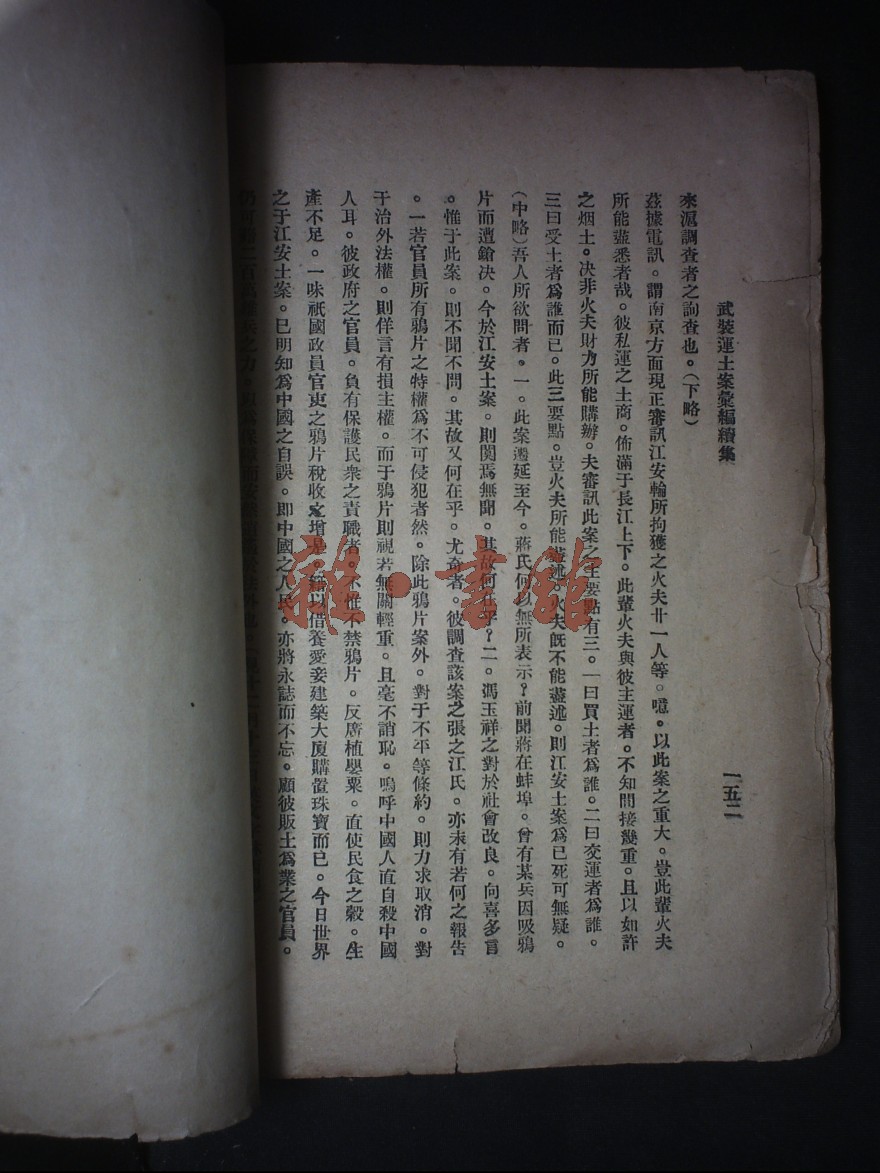 武裝運土案彙編續集
一五二
來滬調查者之詢查也。(下略)
茲據電訊。謂南京方面現正審訊江安輪所拘獲之火夫卄一人等。噫。以此案之重大。豈此輩火夫
所能盡悉者哉。彼私運之土商。佈滿于長江上下。此輩火夫與彼主運者。不知間接幾重。且以如許
之烟土。决非火夫財力所能購辦。夫審訊此案之主要點有三。一曰買土者為誰。二曰交運者為誰。
三曰受土者為誰而已。此三要點。豈火夫所能盡述。火夫旣不能盡述。則江安土案為已死可無疑。
(中略)吾人所欲問者。一。此案遷延至今。蔣氏何以無所表示?前聞蔣在蚌埠。曾有某兵因吸鴉
片而遭鎗决。今於江安土案。則闃焉無聞。其故何在乎?二。馮玉祥之對於社會改良。向喜多言
。惟于此案。則不聞不問。其故又何在乎。尤奇者。彼調查該案之張之江氏。亦未有若何之報告
。一若官員所有鴉片之特權為不可侵犯者然。除此鴉片案外。對于不平等條約。則力求取消。對
于治外法權。則佯言有損主權。而于鴉片則視若無關輕重。且毫不誚恥。嗚呼中國人直自殺中國
人耳。彼政府之官員。負有保護民衆之責職者。不惟不禁鴉片。反廣植罌粟。直使民食之穀。生
產不足。一味祇國政員官吏之鴉片稅收之增是。以借養愛妾建築大廈購置珠寶而已。今日世界
之于江安土案。已明知為中國之自誤。即中國之人民。亦將永誌而不忘。顧彼販土為業之官員。
雜·書館